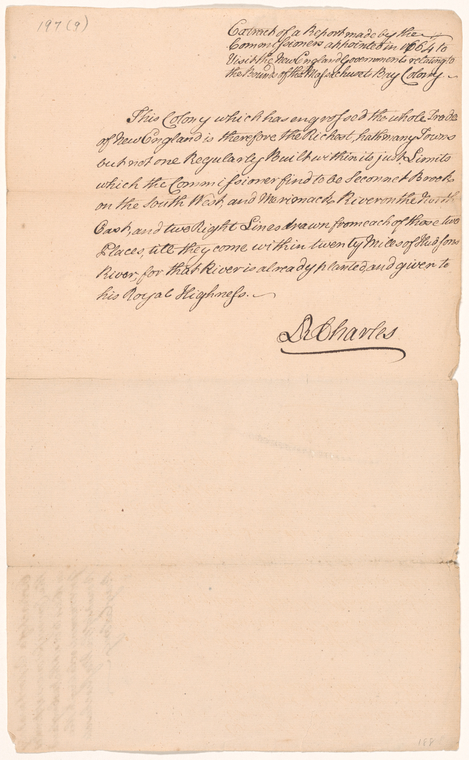 197 (9)
Extract of a Report made by the
Commissioners appointed in 1664 to
Visit the New England Governments relating to
the Bounds of the Massachusets Bay Colony
This Colony which has engrossed the whole Trade
of New England is therefore the Richest, hath many Towns
but not one Regularly Built within its just Limits
which the Commissioners find to be Seconnet Brook
on the South West, and Merimack River on the North
East, and two Right Lines drawn from each of those two
Places, till they come within twenty Miles of Hudsons
River, for that River is already planted, and given to
his Royal Highness.
Rr Charles